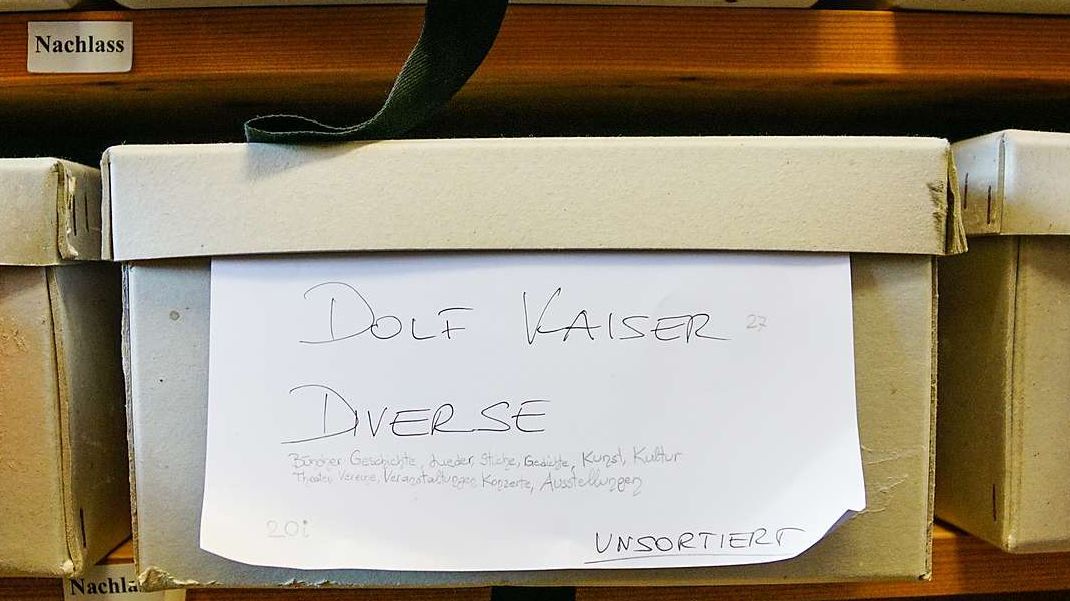 Nachlass
DOLF KAISER 27
DIVERSE
Bündner Geschichte, Lieder, Stiche, Gedichte, Kunst, Kultur
Theater, Vereine, Veranstaltungen, Konzerte, Ausstellungen
20i
UNSORTIERT
Nachla